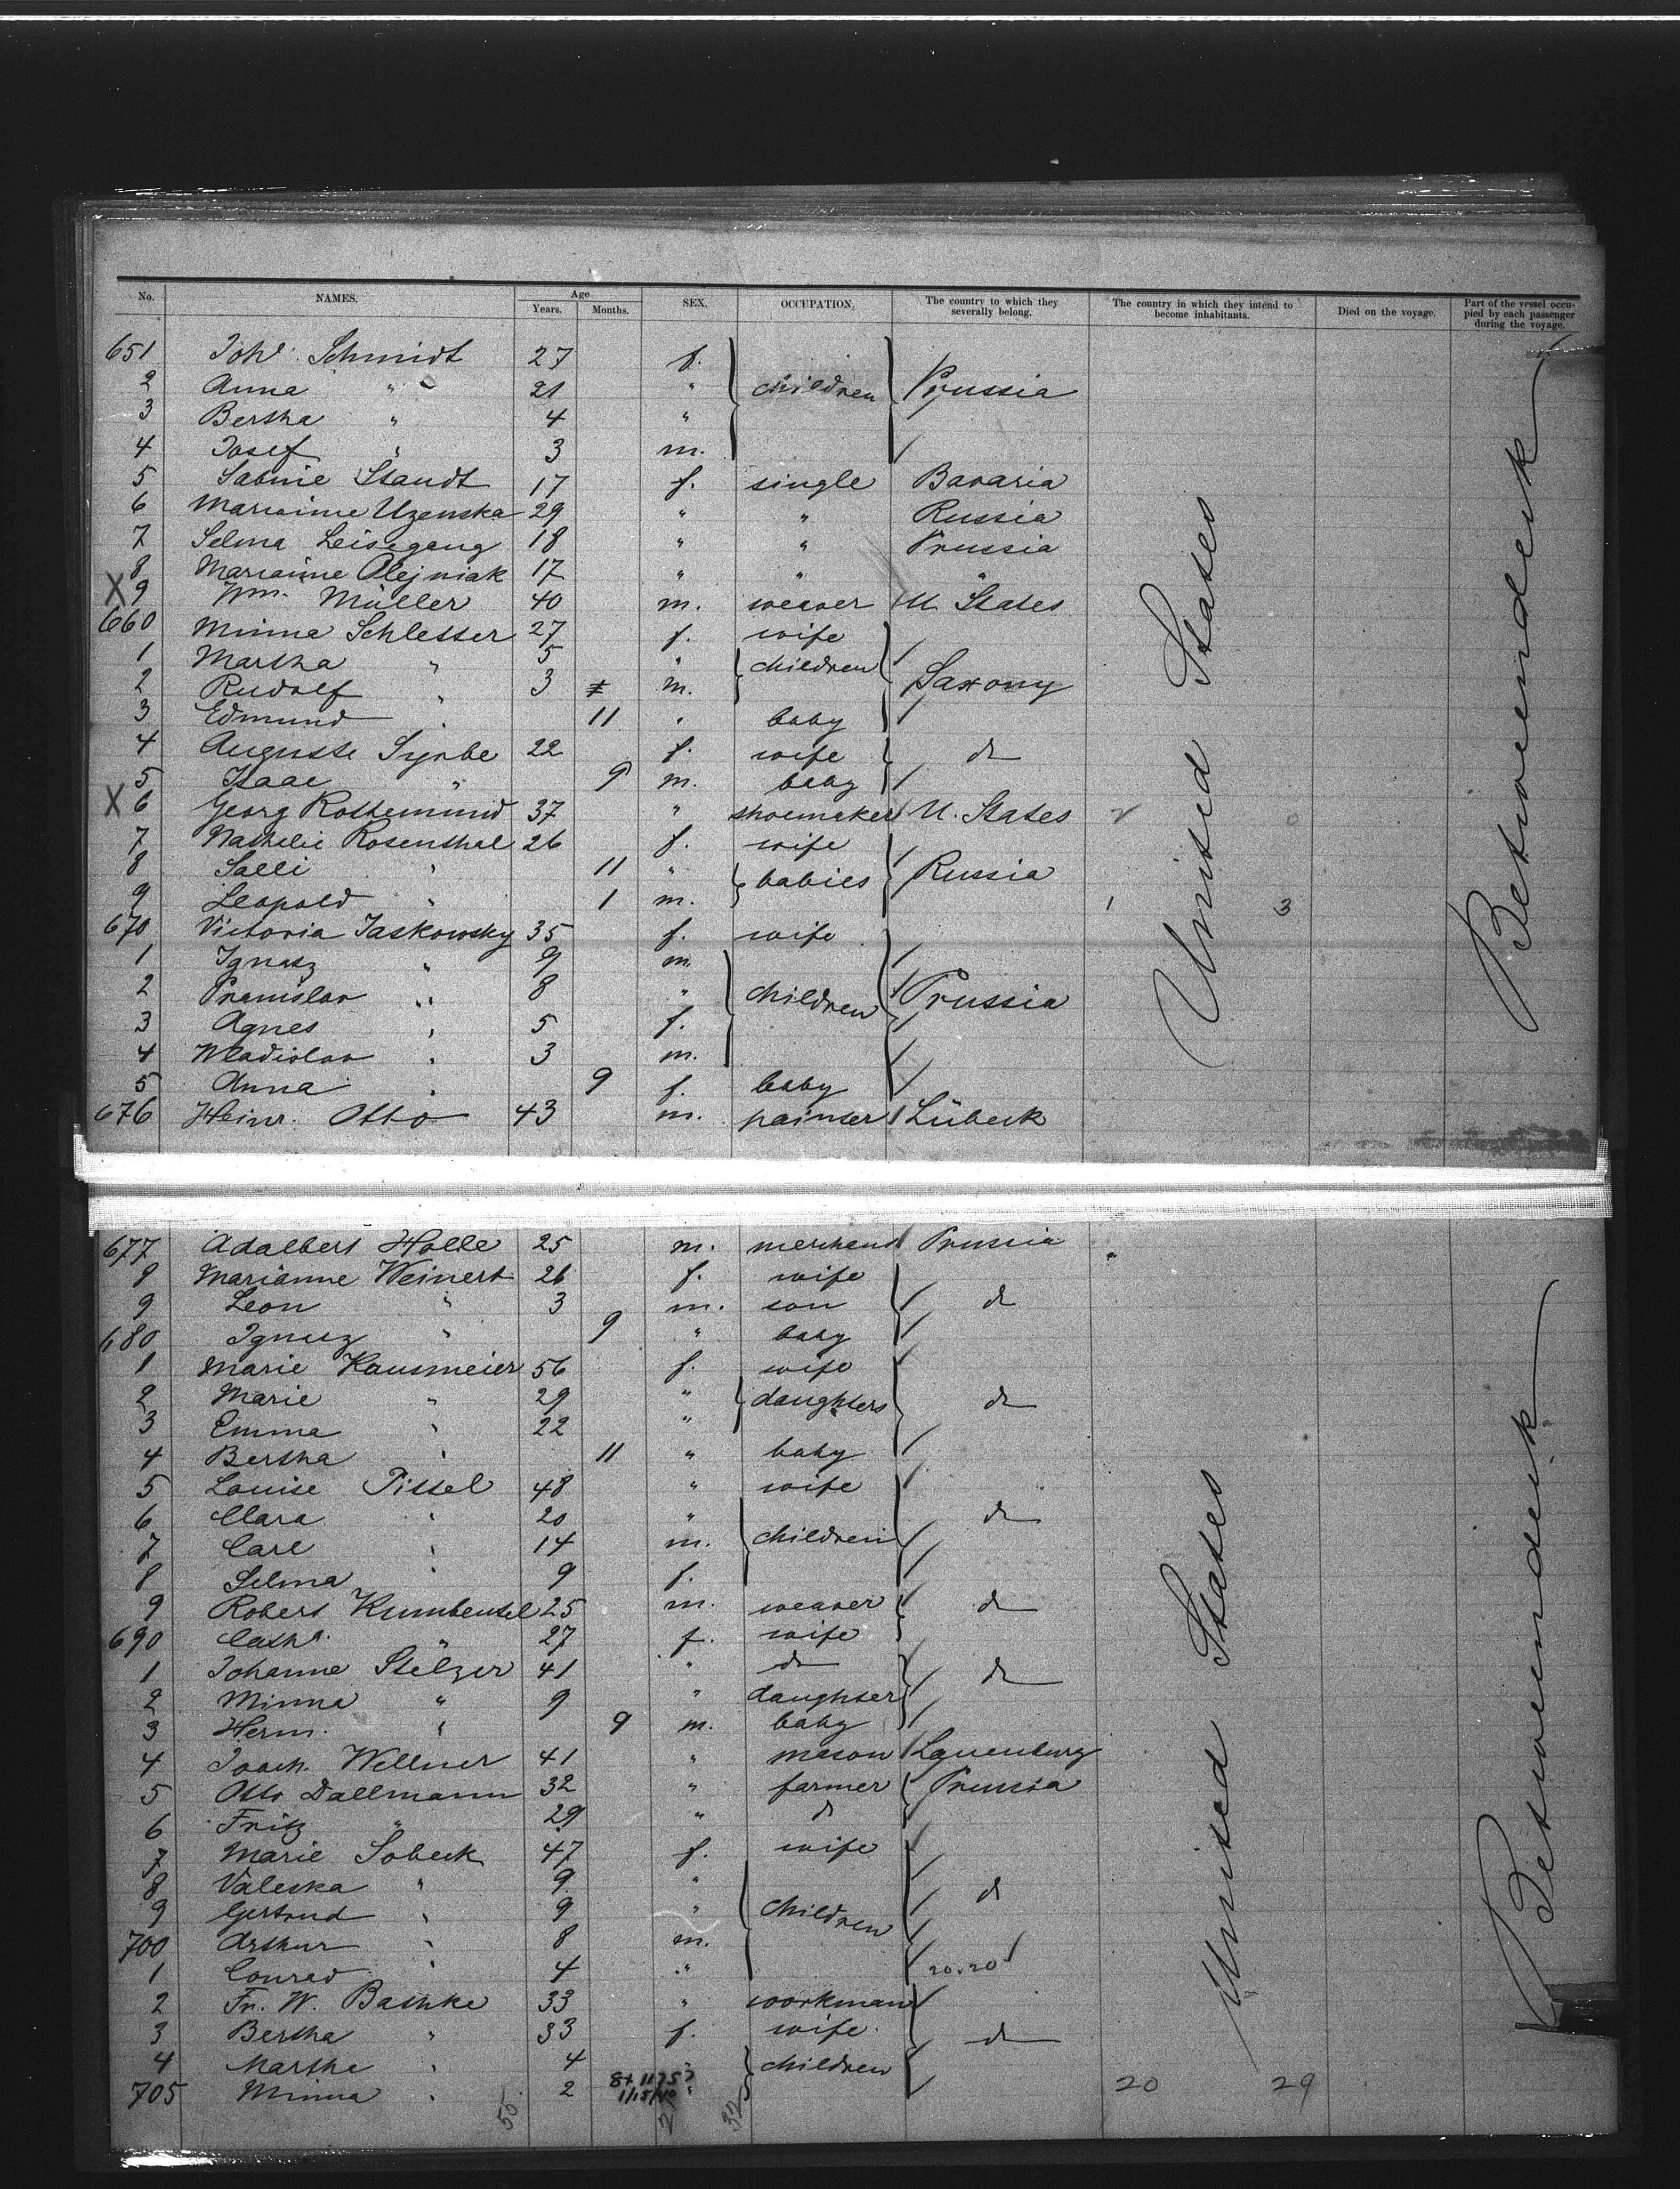 No. NAMES. Age Years. Months. SEX. OCCUPATION. The country to which they severally belong. The country in which they intend to become inhabitants. Died on the voyage. Part of the vessel occupied by each passenger during the voyage.
651 Joh⁠ª Schmidt 27 f.
2 Anna " 21 " children Prussia
3 Bertha " 4 "
4 Josef " 3 m.
5 Sabine Staudt 17 f. single Bavaria
6 Marianne Uzenska 29 " " Russia
7 Selma Leisegang 18 " " Prussia
8 Marianne Olejniak 17 " " "
X 9 Wm. Müller 40 m. weaver U. States
660 Minna Schlesser 27 f. wife
1 Martha " 5 " children
2 Rudolf " 3 m. Saxony
3 Edmund " 11 " baby
4 Auguste Syrbe 22 f. wife do
5 Isaac " 9 m. baby
X 6 Georg Rothemund 37 " shoemaker U. States
7 Nathelie Rosenthal 26 f. wife
8 Salli " 11 " babies Russia
9 Leopold " 1 m. 1 3
670 Victoria Jaskowsky 35 f. wife
1 Ignatz " 9 m.
2 Pranislav " 8 " children Prussia
3 Agnes " 5 f.
4 Wladislav " 3 m.
5 Anna " 9 f. baby
676 Heinr. Otto 43 m. painter Lübeck
United States
Betweendeck
677 Adalbert Holle 25 m. merchant Prussia
8 Marianne Weinert 26 f. wife
9 Leon " 3 m. son do
680 Ignatz " 9 " baby
1 Marie Kausmeier 56 f. wife
2 Marie " 29 " daughters do
3 Emma " 22 "
4 Bertha " 11 " baby
5 Louise Pissel 48 " wife
6 Clara " 20 " do
7 Carl " 14 m. children
8 Selma " 9 f.
9 Robert Kumbeutel 25 m. weaver do
690 Cathª " 27 f. wife
1 Johanne Stelzer 41 " do do
2 Minna " 9 " daughter
3 Herm. " 9 m. baby
4 Joach. Wellner 41 " mason Lauenburg
5 Otto Dallmann 32 " farmer Prussia
6 Fritz " 29 " do
7 Marie Sobeck 47 f. wife
8 Valeska " 9 " do
9 Gertrud " 9 " children
700 Arthur " 8 m.
1 Conrad " 4 " 20.20
2 Fr. W. Bathke 33 " workman
3 Bertha " 33 f. wife do
4 Marthe " 4 " children
705 Minna " 2 " 20 29
United States
Betweendeck